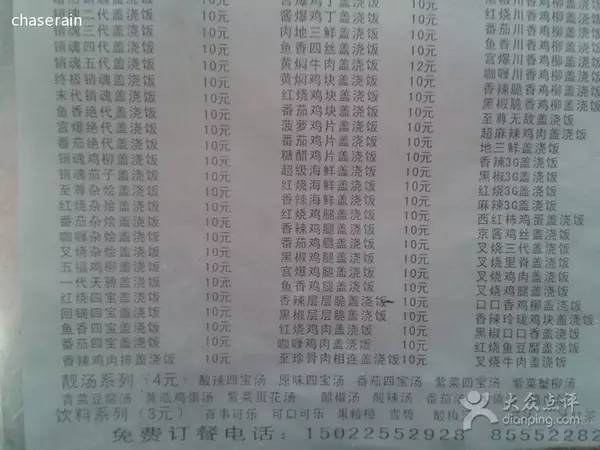 chaserain
销魂二代盖浇饭 10元 酱爆鸡丁盖浇饭 10元
销魂三代盖浇饭 10元 肉地三鲜盖浇饭 10元 红烧川香鸡柳盖浇饭
销魂四代盖浇饭 10元 鱼香四丝盖浇饭 10元 番茄川香鸡柳盖浇饭
销魂五代盖浇饭 10元 黄焖牛肉盖浇饭 12元 咖喱川香鸡柳盖浇饭
终极销魂盖浇饭 10元 黄焖鸡块盖浇饭 10元 香辣脆香鸡柳盖浇饭
末代销魂盖浇饭 10元 红烧鸡块盖浇饭 10元 黑椒脆香鸡柳盖浇饭
鱼香绝代盖浇饭 10元 番茄鸡块盖浇饭 10元 至尊无敌盖浇饭
宫爆绝代盖浇饭 10元 菠萝鸡片盖浇饭 10元 超麻辣鸡肉盖浇饭
番茄绝代盖浇饭 10元 番茄鸡片盖浇饭 10元 地三鲜盖浇饭
销魂鸡柳盖浇饭 10元 糖醋鸡片盖浇饭 10元 香辣3G盖浇饭
销魂茄子盖浇饭 10元 超级海鲜盖浇饭 10元 黑椒3G盖浇饭
至尊杂烩盖浇饭 10元 红烧海鲜盖浇饭 10元 红烧3G盖浇饭
红烧杂烩盖浇饭 10元 香辣海鲜盖浇饭 10元 麻辣3G盖浇饭
番茄杂烩盖浇饭 10元 红烧鸡腿盖浇饭 10元 西红柿鸡蛋盖浇饭
咖喱杂烩盖浇饭 10元 香辣鸡腿盖浇饭 10元 京酱鸡丝盖浇饭
叉烧杂烩盖浇饭 10元 番茄鸡腿盖浇饭 10元 叉烧三代盖浇饭
五福鸡柳盖浇饭 10元 黑椒鸡腿盖浇饭 10元 叉烧里脊盖浇饭
一代天骄盖浇饭 10元 宫爆鸡腿盖浇饭 10元 叉烧鸡肉盖浇饭
红烧四宝盖浇饭 10元 鱼香鸡腿盖浇饭 10元 叉烧鸡腿盖浇饭
回锅四宝盖浇饭 10元 香辣层层脆盖浇饭 10元 口口香鸡柳盖浇饭
鱼香四宝盖浇饭 10元 黑椒层层脆盖浇饭 10元 香辣玲珑鸡块盖浇饭
番茄四宝盖浇饭 10元 红烧鸡肉盖浇饭 10元 黑椒口口香盖浇饭
香辣鸡肉排盖浇饭 10元 咖喱鸡肉盖浇饭 10元 红烧鱼豆腐盖浇饭
至珍骨肉相连盖浇饭 10元 叉烧牛肉盖浇饭
靓汤系列（4元） 酸辣四宝汤 原味四宝汤 番茄四宝汤 紫菜四宝汤 紫菜蟹柳汤
青菜豆腐汤 黄瓜鸡蛋汤 紫菜蛋花汤 醋椒汤 酸辣汤 番茄
饮料系列（3元） 百事可乐 可口可乐 果粒橙 雪碧
免费订餐电话：15022552928 85552282
大众点评
dianping.com